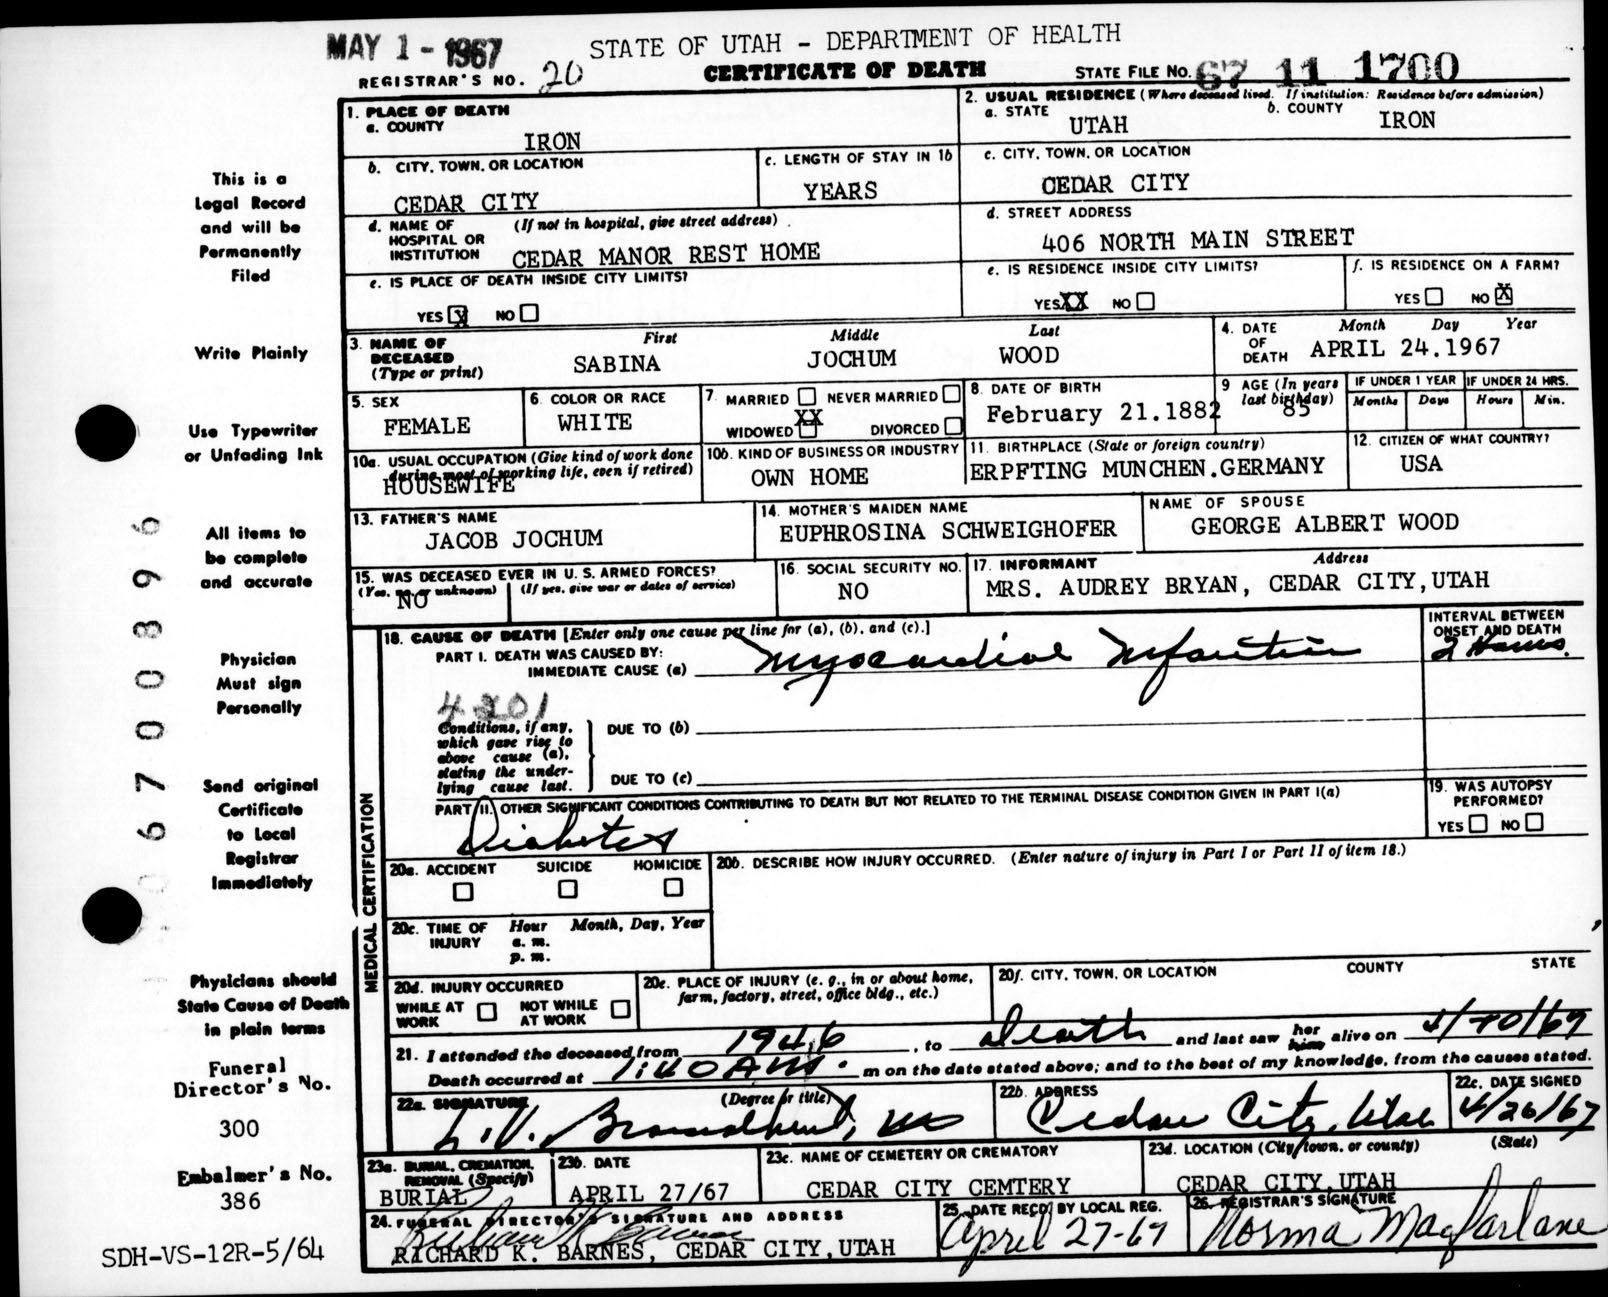 MAY 1 - 1967
STATE OF UTAH - DEPARTMENT OF HEALTH
REGISTRAR'S NO. 20
CERTIFICATE OF DEATH
STATE FILE No. 67 11 1700
1. PLACE OF DEATH
a. COUNTY
IRON
2. USUAL RESIDENCE (Where deceased lived. If institution: Residence before admission)
a. STATE UTAH b. COUNTY IRON
b. CITY, TOWN, OR LOCATION
CEDAR CITY
c. LENGTH OF STAY IN 1b
YEARS
c. CITY, TOWN, OR LOCATION
CEDAR CITY
d. NAME OF HOSPITAL OR INSTITUTION (If not in hospital, give street address)
CEDAR MANOR REST HOME
d. STREET ADDRESS
406 NORTH MAIN STREET
e. IS PLACE OF DEATH INSIDE CITY LIMITS?
YES X NO
e. IS RESIDENCE INSIDE CITY LIMITS?
YES XX NO
f. IS RESIDENCE ON A FARM?
YES NO X
3. NAME OF DECEASED (Type or print)
First Middle Last
SABINA JOCHUM WOOD
4. DATE OF DEATH Month Day Year
APRIL 24.1967
5. SEX
FEMALE
6. COLOR OR RACE
WHITE
7. MARRIED NEVER MARRIED
XX
WIDOWED DIVORCED
8. DATE OF BIRTH
February 21.1882
9 AGE (In years last birthday)
85
IF UNDER 1 YEAR IF UNDER 24 HRS.
Months Days Hours Min.
10a. USUAL OCCUPATION (Give kind of work done during most of working life, even if retired)
HOUSEWIFE
10b. KIND OF BUSINESS OR INDUSTRY
OWN HOME
11. BIRTHPLACE (State or foreign country)
ERPFTING MUNCHEN.GERMANY
12. CITIZEN OF WHAT COUNTRY?
USA
13. FATHER'S NAME
JACOB JOCHUM
14. MOTHER'S MAIDEN NAME
EUPHROSINA SCHWEIGHOFER
NAME OF SPOUSE
GEORGE ALBERT WOOD
15. WAS DECEASED EVER IN U. S. ARMED FORCES?
(Yes, no or unknown) (If yes, give war or dates of service)
NO
16. SOCIAL SECURITY NO.
NO
17. INFORMANT Address
MRS. AUDREY BRYAN, CEDAR CITY,UTAH
MEDICAL CERTIFICATION
18. CAUSE OF DEATH [Enter only one cause per line for (a), (b), and (c).]
INTERVAL BETWEEN ONSET AND DEATH
PART I. DEATH WAS CAUSED BY:
IMMEDIATE CAUSE (a) Myocardial Infarction 2 Hours.
4201
Conditions, if any, which gave rise to above cause (a), stating the underlying cause last.
DUE TO (b)
DUE TO (c)
PART II. OTHER SIGNIFICANT CONDITIONS CONTRIBUTING TO DEATH BUT NOT RELATED TO THE TERMINAL DISEASE CONDITION GIVEN IN PART I(a)
Diabetes
19. WAS AUTOPSY PERFORMED?
YES NO
20a. ACCIDENT SUICIDE HOMICIDE
20b. DESCRIBE HOW INJURY OCCURRED. (Enter nature of injury in Part I or Part II of item 18.)
20c. TIME OF INJURY Hour Month, Day, Year
a. m.
p. m.
20d. INJURY OCCURRED
WHILE AT WORK NOT WHILE AT WORK
20e. PLACE OF INJURY (e. g., in or about home, farm, factory, street, office bldg., etc.)
20f. CITY, TOWN, OR LOCATION COUNTY STATE
21. I attended the deceased from 1946, to Death and last saw her him alive on 4/20/67
Death occurred at 1:40 AM. m on the date stated above; and to the best of my knowledge, from the causes stated.
22a. SIGNATURE (Degree or title)
L.V. Broadbent, MD
22b. ADDRESS
Cedar City, Utah
22c. DATE SIGNED
4/26/67
23a. BURIAL, CREMATION, REMOVAL (Specify)
BURIAL
23b. DATE
APRIL 27/67
23c. NAME OF CEMETERY OR CREMATORY
CEDAR CITY CEMTERY
23d. LOCATION (City, town, or county) (State)
CEDAR CITY, UTAH
24. FUNERAL DIRECTOR'S SIGNATURE AND ADDRESS
Richard K Barnes
RICHARD K. BARNES, CEDAR CITY,UTAH
25. DATE REC'D BY LOCAL REG.
April 27-67
26. REGISTRAR'S SIGNATURE
Norma Macfarlane
This is a
Legal Record
and will be
Permanently
Filed
Write Plainly
Use Typewriter
or Unfading Ink
All items to
be complete
and accurate
Physician
Must sign
Personally
Send original
Certificate
to Local
Registrar
Immediately
Physicians should
State Cause of Death
in plain terms
Funeral
Director's No.
300
Embalmer's No.
386
SDH-VS-12R-5/64
0 6 7 0 0 8 9 6